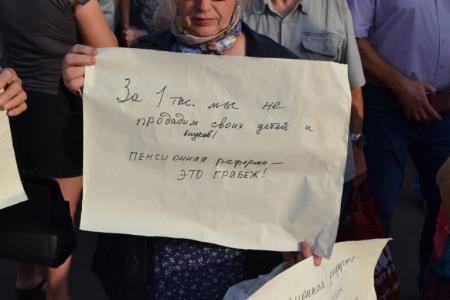 За 1 тыс. мы не
продадим своих детей и
внуков!
ПЕНСИОННАЯ РЕФОРМА —
ЭТО ГРАБЕЖ!